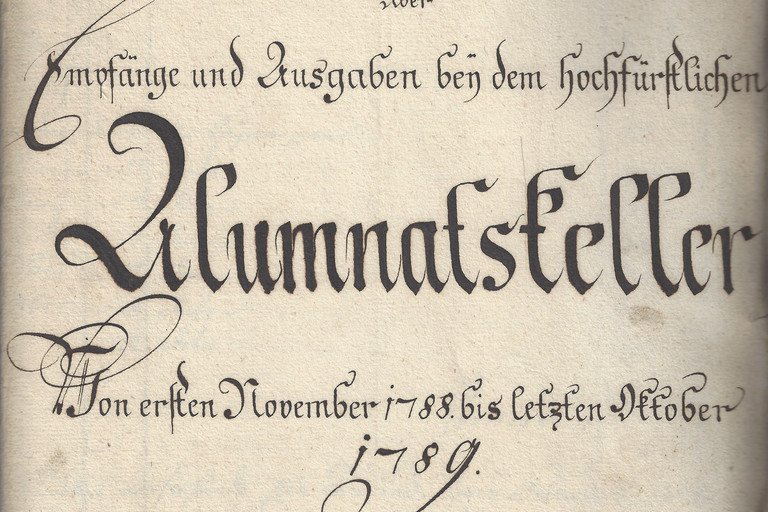 über
Empfänge und Ausgaben beÿ dem hochfürstlichen
Alumnatskeller
Von ersten November 1788. bis letzten Oktober
1789.